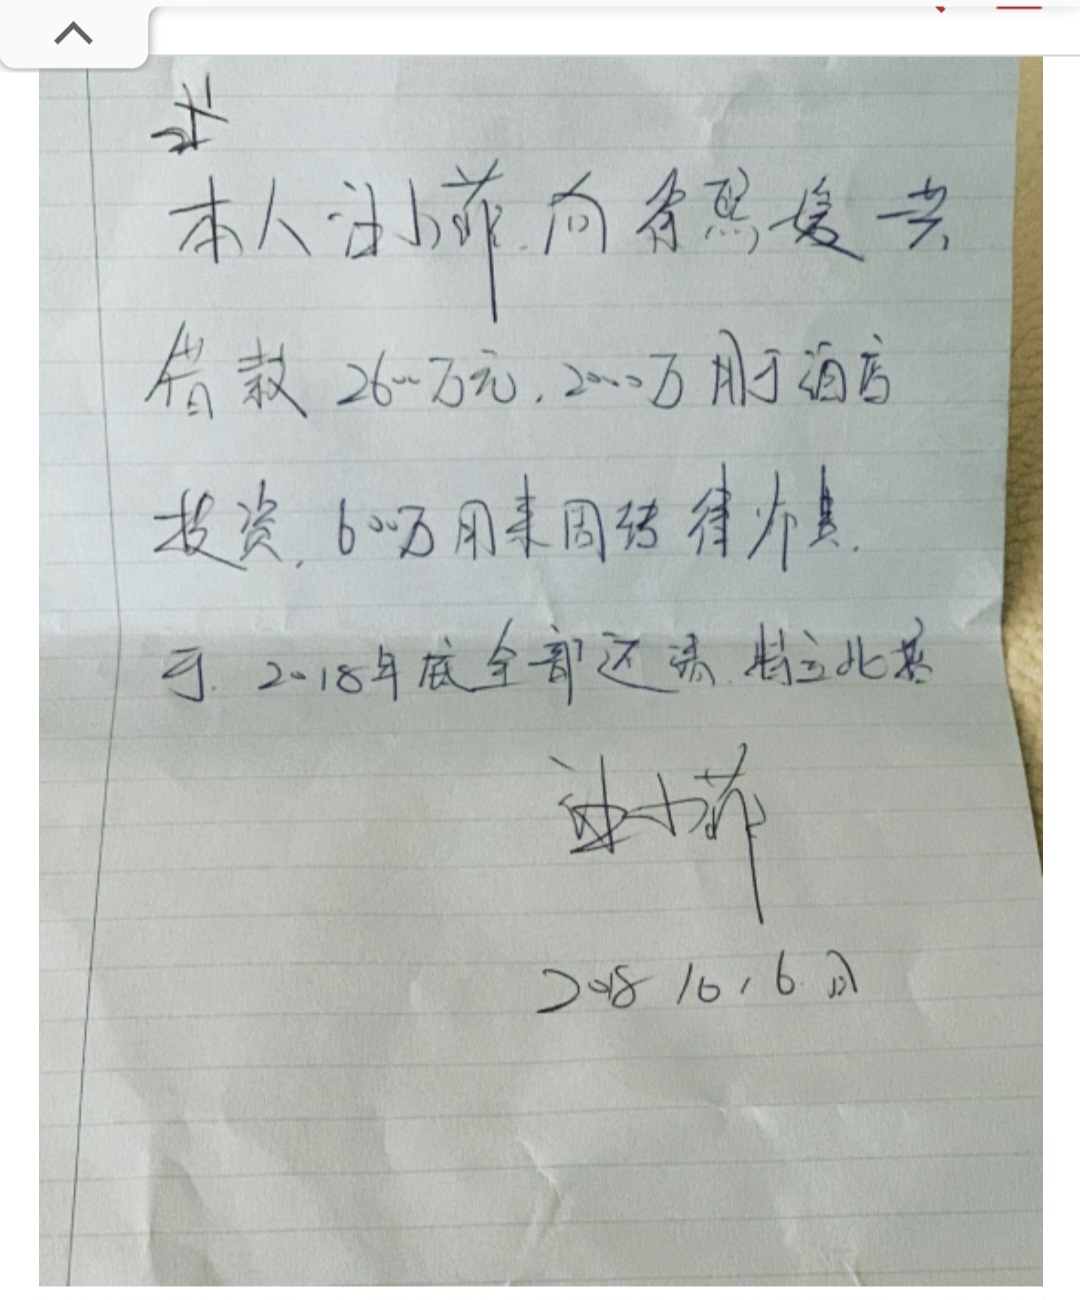 本人汪小菲向徐熙媛共
借款2600万元.2000万用于酒店
投资.600万用来周转律师费.
于.2018年底全部还清.特立此据
汪小菲
2018 10.6日